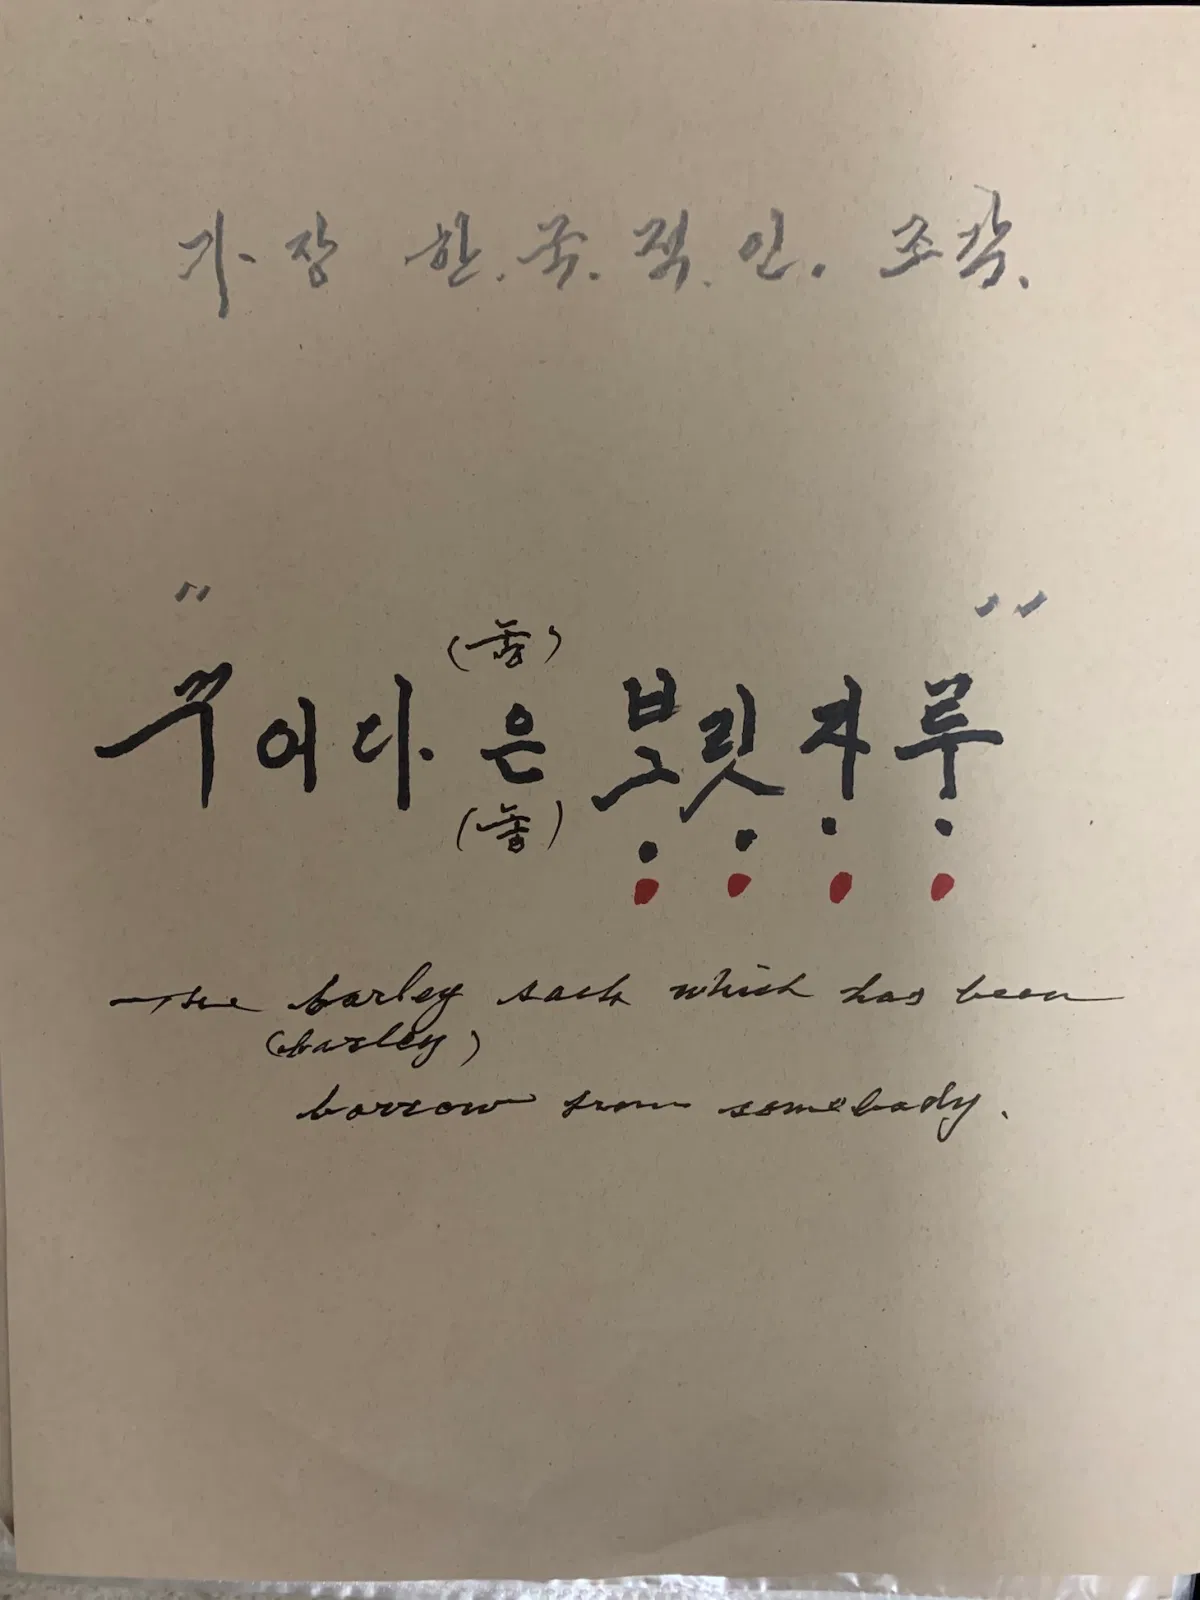 가장 한.국.적.인. 조각.
"
"
(놓)
꾸어다 은 보릿자루
(놓)
The barley sack which has been
(barley)
borrow from somebody.